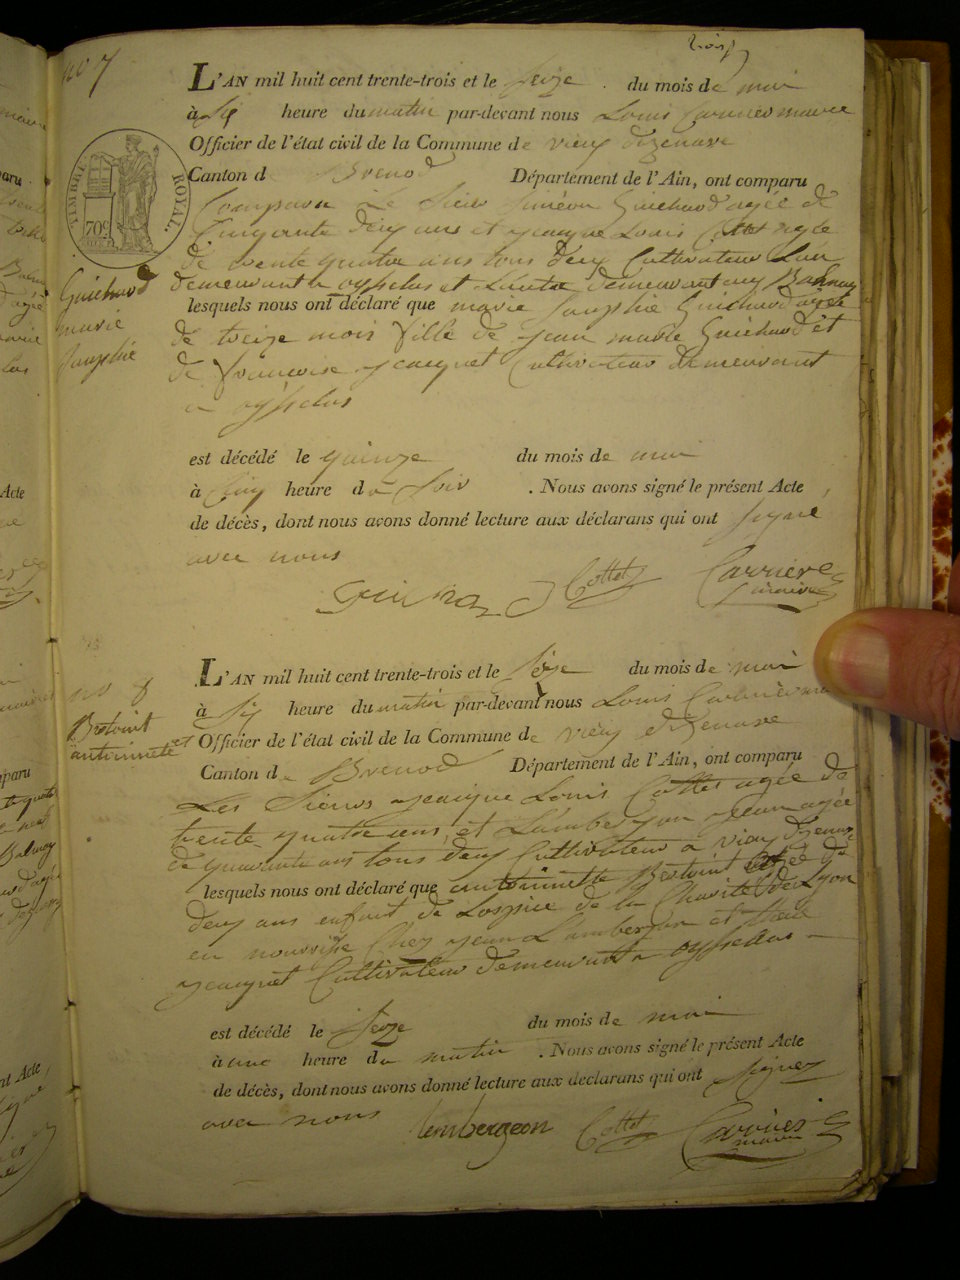 trois
no 7
L'AN mil huit cent trente-trois et le Seize du mois de mai
à Six heure du matin par-devant nous Louis Carrier maire
Officier de l'état civil de la Commune de vieu dizenave
Canton d Brenod Département de l'Ain, ont comparu
TIMBRE ROYAL.
70c
Comparu Le Sieur Siméon Guichard agée de
Cinquante deux ans et jacque Louis Cottet agée
de trente quatre ans tous deux Cultivateur L'un
demeurant a oysselas et L'autre demeurant au Balmay
Guichard
marie
Josephie
lesquels nous ont déclaré que marie Josephie Guichard agée
de treize mois fille de jean marie Guichard et
de francoise jacquet Cultivateur demeurant
a oysselas
est décédé le quinze du mois de mai
à Cinq heure du Soir . Nous avons signé le présent Acte
de décès, dont nous avons donné lecture aux déclarans qui ont signé
avec nous
Cottet Carrier
maire
no 8
Bertoint
antoinnette
L'AN mil huit cent trente-trois et le Seize du mois de mai
à Six heure du matin par-devant nous Louis Carrier ma
Officier de l'état civil de la Commune de vieu dizenave
Canton de Brenod Département de l'Ain, ont comparu
Les Sieurs jacque Louis Cottet agée de
trente quatre ans, et Lamberjon jean agée
de quarante ans tous deux Cultivateur a vieu dizenave
lesquels nous ont déclaré que antoinnette Bertoint agée de
deux ans enfant de Lospice de la Charité de Lyon
en nourrise Chez jean Lamberjon et
jacquet Cultivateur demeurant a oysselas
est décédé le Seize du mois de mai
à une heure du matin . Nous avons signé le présent Acte
de décès, dont nous avons donné lecture aux déclarans qui ont signez
avec nous
lembergeon Cottet Carrier
maire